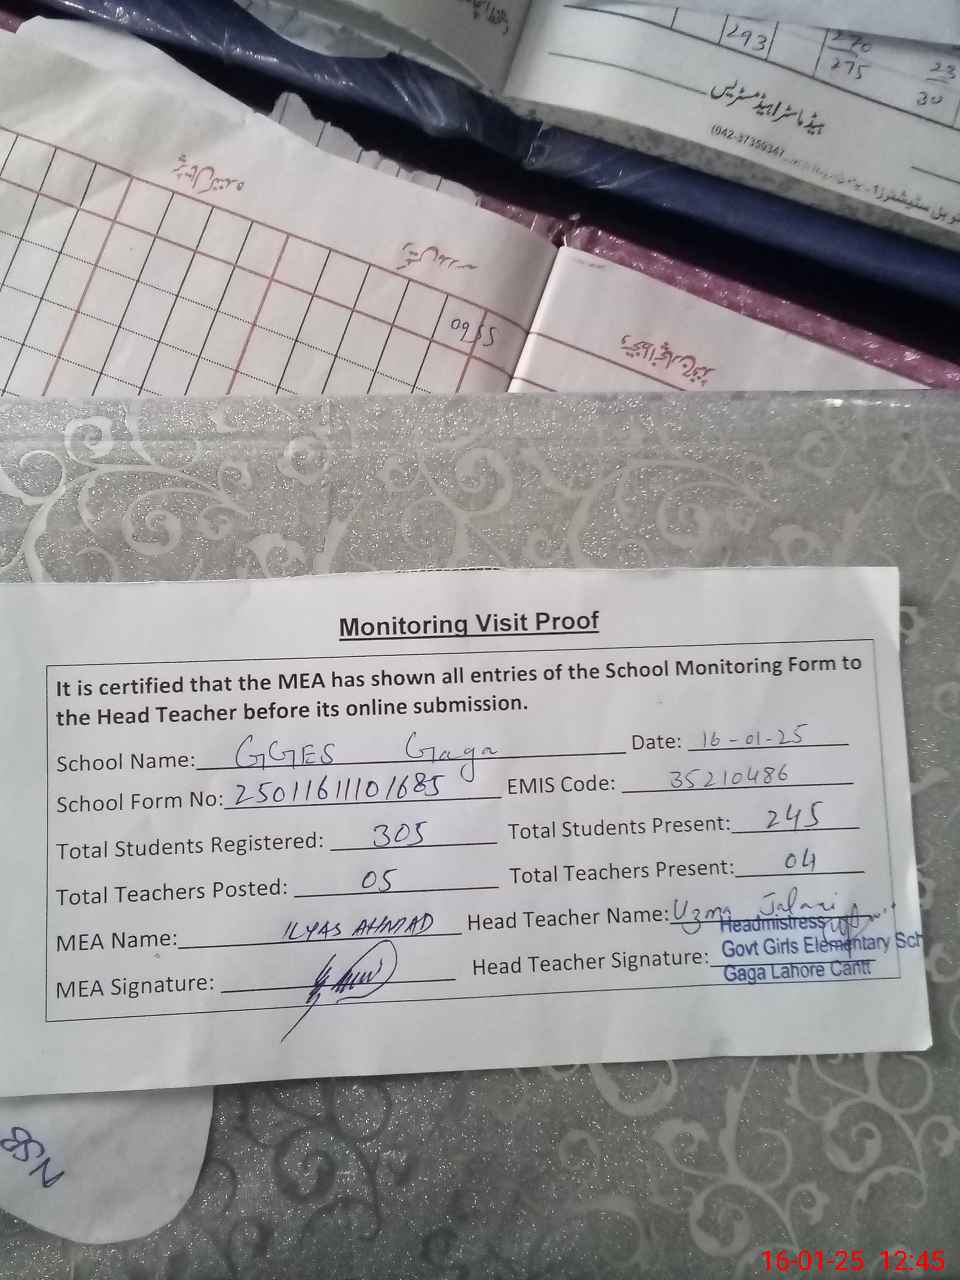 293
270
275
23
30
ہیڈ ماسٹر/ہیڈ مسٹریس
(042-37350347
5560
Monitoring Visit Proof
It is certified that the MEA has shown all entries of the School Monitoring Form to
the Head Teacher before its online submission.
School Name: GGES Gaga Date: 16-01-25
School Form No: 25011611101685 EMIS Code: 35210486
Total Students Registered: 305 Total Students Present: 245
Total Teachers Posted: 05 Total Teachers Present: 04
MEA Name: ILYAS AHMAD Head Teacher Name: Uzma
MEA Signature: Head Teacher Signature:
Headmistress
Govt Girls Elementary Sch
Gaga Lahore Cantt
NSB
16-01-25 12:45